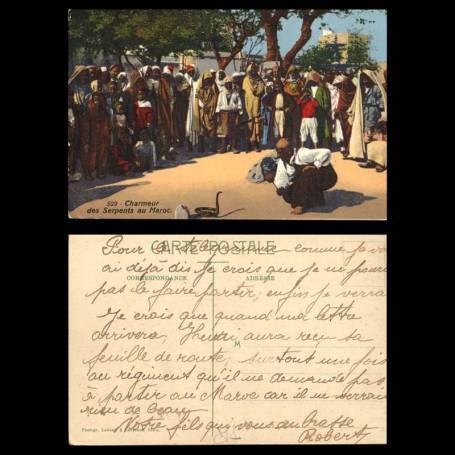 529 - Charmeur
des Serpents au Maroc.
CARTE POSTALE
CORRESPONDANCE
ADRESSE
M
Pour le télégramme comme je vous
ai déjà dis je crois que je ne pourrai
pas le faire partir, enfin je verrai
Je crois que quand ma lettre
arrivera, Henri aura reçu sa
feuille de route, surtout une fois
au régiment qu'il ne demande pas
à partir au Maroc car il ne verrait
rien de beau
Votre fils qui vous embrasse
Robert
Photogr.